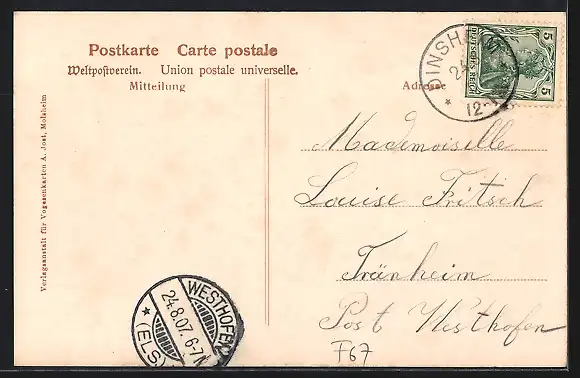 Postkarte Carte postale
Weltpostverein. Union postale universelle.
Mitteilung
Adresse
Verlagsanstalt für Vogesenkarten A. Jost, Molsheim
5
DEUTSCHES REICH
5
DINSH
24
12
Mademoiselle
Louise Fritsch
Tränheim
Post Westhofen
F67
WESTHOFEN
24.8.07. 6-7N
* (ELS.) *